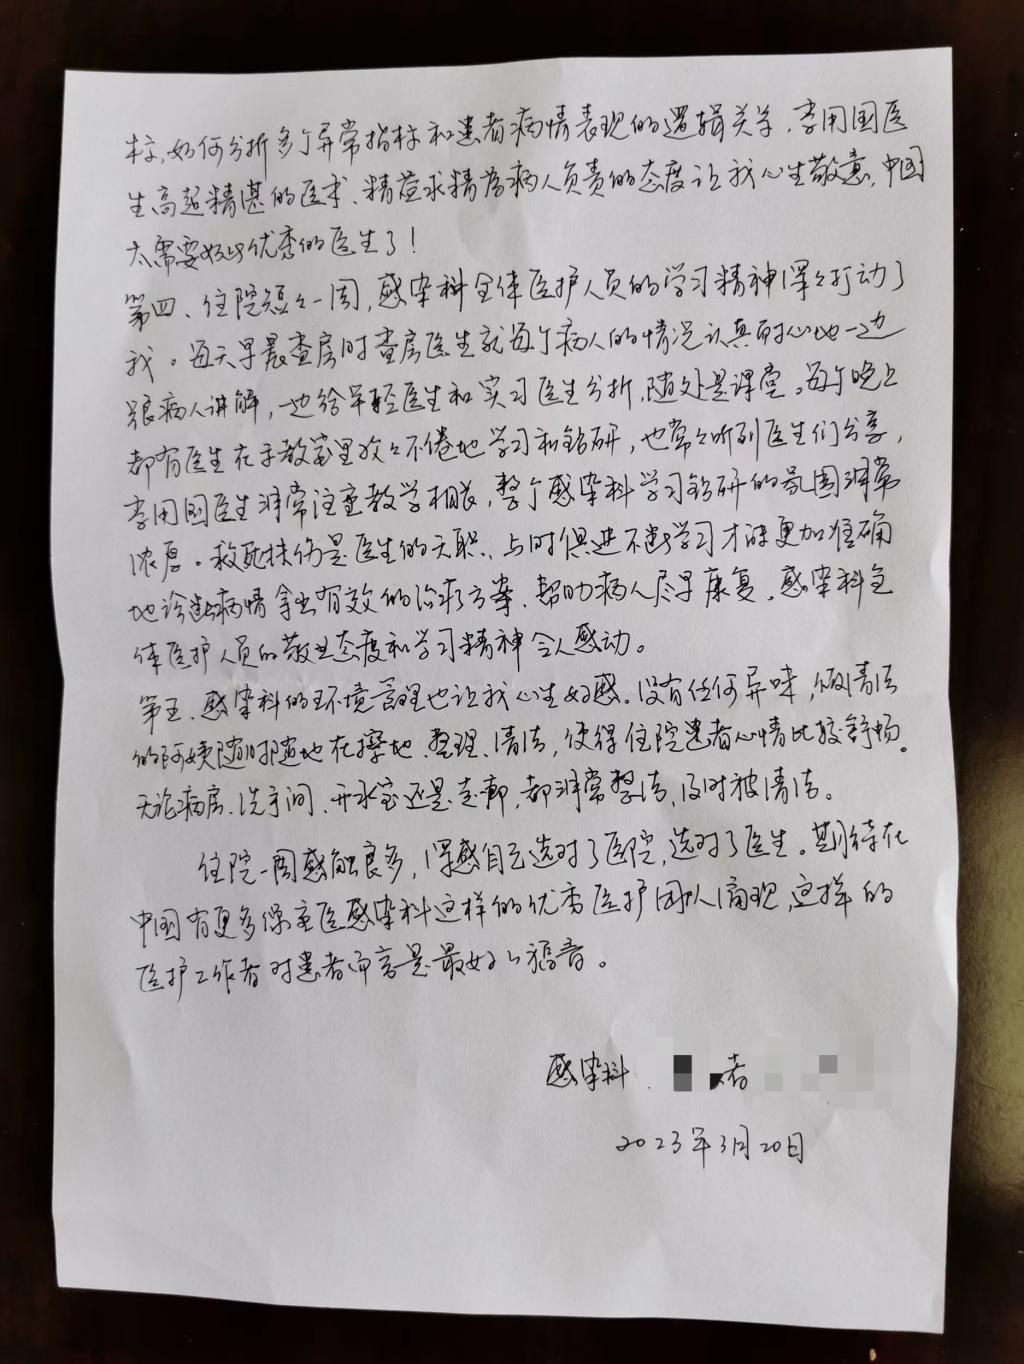 标,如何分析多个异常指标和患者病情表现的逻辑关系,李用国医
生高超精湛的医术、精益求精为病人负责的态度让我心生敬意,中国
太需要如此优秀的医生了!
第四、住院短々一周,感染科全体医护人员的学习精神深々打动了
我。每天早晨查房时查房医生就每个病人的情况认真耐心地一边
跟病人讲解,一边给年轻医生和实习医生分析,随处是课堂。每个晚上
都有医生在示教室里孜々不倦地学习和钻研,也常々听到医生们分享,
李用国医生非常注重教学相长,整个感染科学习钻研的氛围非常
浓厚。救死扶伤是医生的天职、与时俱进不断学习才能更加准确
地诊断病情拿出有效的治疗方案、帮助病人尽早康复。感染科全
体医护人员的敬业态度和学习精神令人感动。
第五、感染科的环境管理也让我心生好感。没有任何异味,做清洁
的阿姨随时随地在擦地、整理、清洁,使得住院患者心情比较舒畅。
无论病房、洗手间、开水室还是走廊,都非常整洁,及时被清洁。
住院一周感触良多,深感自己选对了医院,选对了医生。期待在
中国有更多像重医感染科这样的优秀医护团队涌现,这样的
医护工作者对患者而言是最好的福音。
感染科、者
2023年3月20日